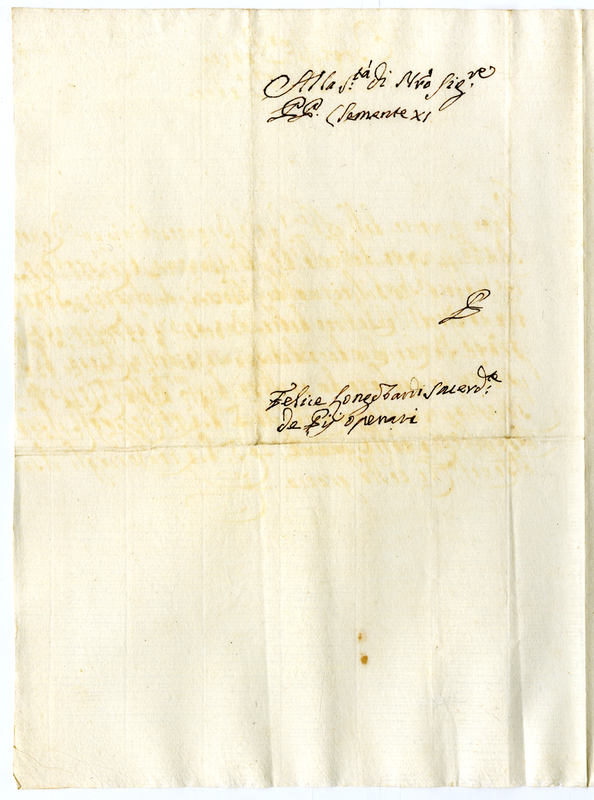 Alla S.tà di Nr̃o Sig.re
PP. Clemente XI
P
Felice Longobardi Sacerd.te
de Pij Operari